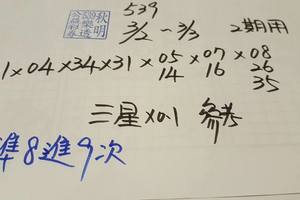 539
3/2～3/3 2期用
1×04×34×31×05×07×08
14 16 26
35
三星×0.1 參考
準8進9次